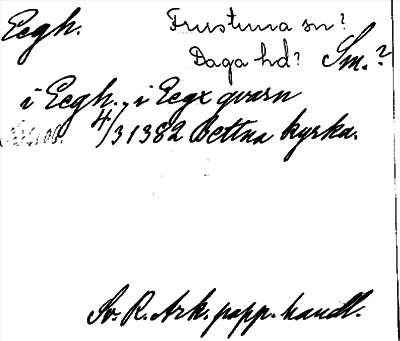 Eegh. Frustuna sn?
Daga hd? Sm.?
i Eegh., i Eegx qvarn
4/3 1382 Bettna kyrka.
Sv. R. Ark. papp. handl.